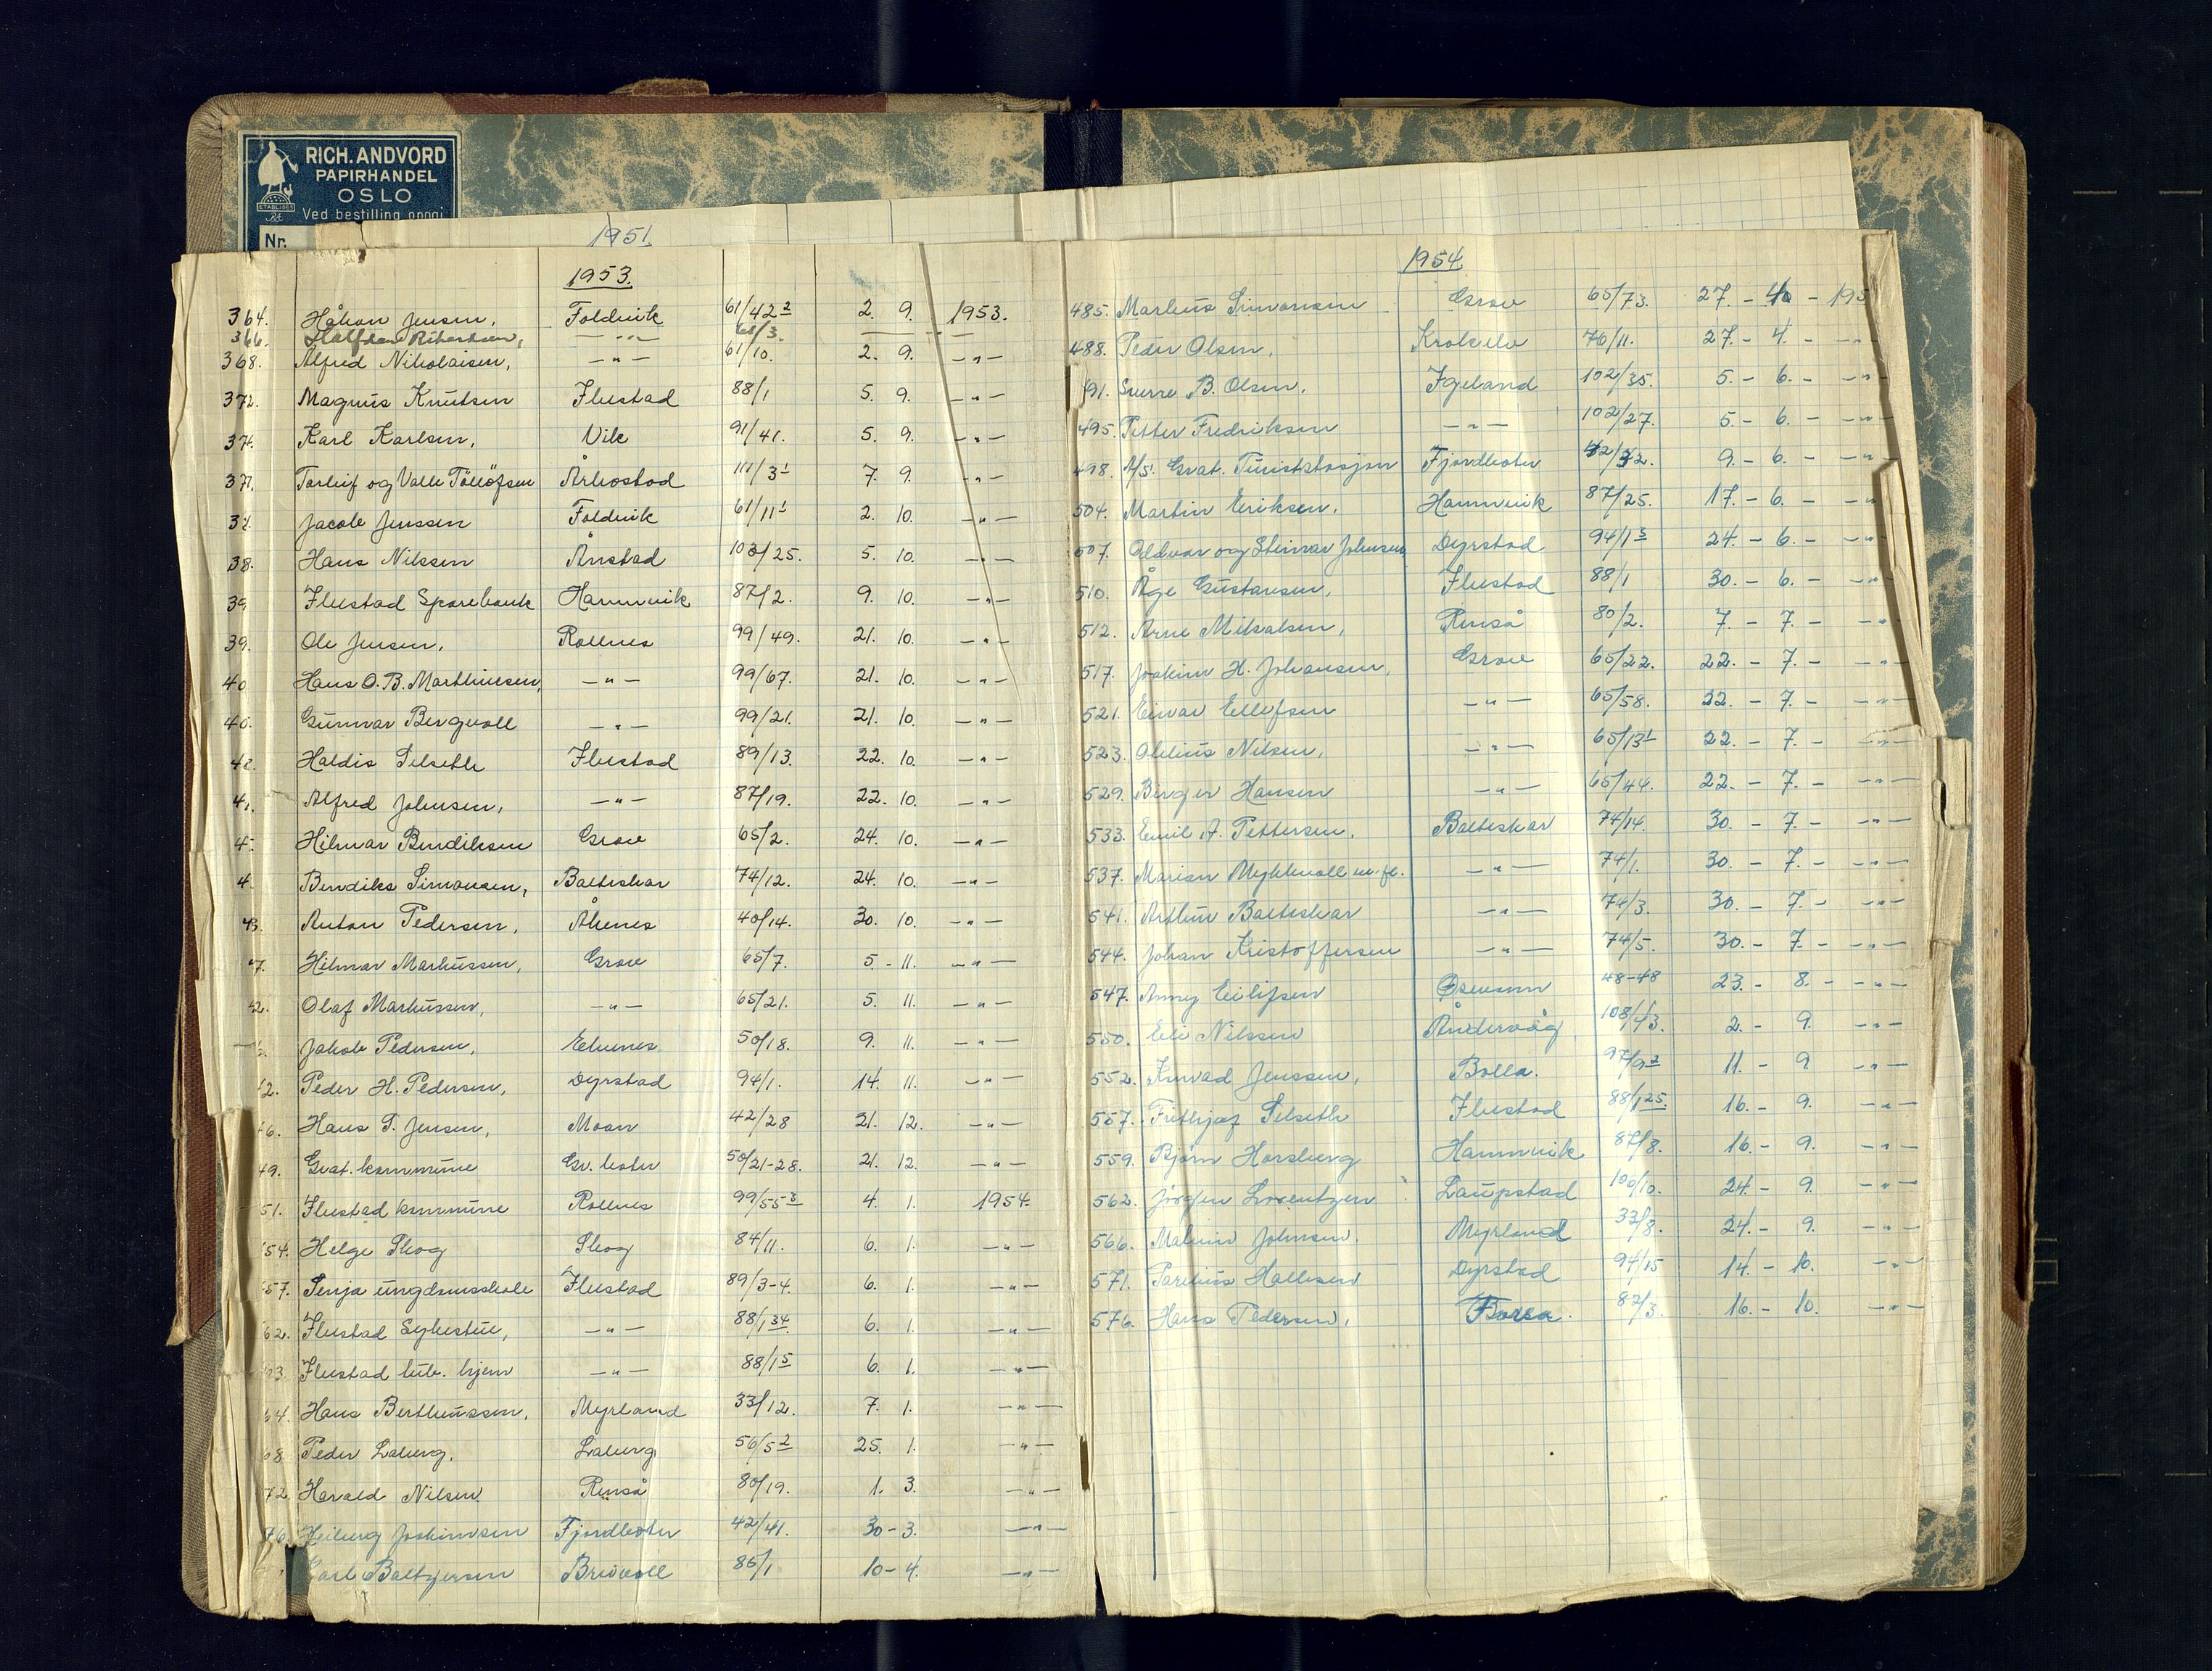 RICH. ANDVORD
PAPIRHANDEL
OSLO
ETABL. 1865
Ved bestilling opgi
Nr.
1951.
1953.
364. Håkon Jensen, Foldvik 61/42² 2. 9. 1953.
366. Halfdan Rikardsen, —"— 61/3.
368. Alfred Nikolaisen, —"— 61/10. 2. 9. —"—
372. Magnus Knutsen Ibestad 88/1 5. 9. —"—
374. Karl Karlsen, Vik 91/41. 5. 9. —"—
377. Torleif og Valle Tollöfsen Årbostad 111/3¹ 7. 9. —"—
Jacob Jenssen Foldvik 61/11¹ 2. 10. —"—
38. Hans Nilssen Ånstad 103/25. 5. 10. —"—
39 Ibestad Sparebank Hamnvik 87/2. 9. 10. —"—
39. Ole Jensen, Rollnes 99/49. 21. 10. —"—
40 Hans O. B. Marthinsen, —"— 99/67. 21. 10. —"—
40. Gunnar Bergvoll —"— 99/21. 21. 10. —"—
Haldis Selseth Ibestad 89/13. 22. 10. —"—
41. Alfred Johnsen, —"— 87/19. 22. 10. —"—
4 Hilmar Bendiksen Grov 65/2. 24. 10. —"—
4 Bendiks Simonsen, Balteskar 74/12. 24. 10. —"—
43. Anton Pedersen, Åknes 40/14. 30. 10. —"—
7. Hilmar Markussen, Grov 65/7. 5. - 11. —"—
2. Olaf Markussen, —"— 65/21. 5. 11. —"—
Jakob Pedersen, Elvenes 50/18. 9. 11. —"—
2. Peder H. Pedersen, Dyrstad 94/1. 14. 11. —"—
6. Hans P. Jensen, Moan 42/28 21. 12. —"—
49. Grat. kommune Gr. botn 50/21-28. 21. 12. —"—
51. Ibestad kommune Rollnes 99/55³ 4. 1. 1954.
54. Helge Skog Skog 84/11. 6. 1. —"—
57. Senja ungdomsskole Ibestad 89/3-4. 6. 1. —"—
62. Ibestad Sykestue, —"— 88/1³⁴. 6. 1. —"—
63. Ibestad tub. hjem —"— 88/1⁵ 6. 1. —"—
64. Hans Bertheussen, Myrland 33/12. 7. 1. —"—
68 Peder Laberg, Laberg 56/5² 25. 1. —"—
72 Harald Nilsen Renså 80/19. 1. 3. —"—
76. Heiberg Joakimsen Fjordbotn 42/41. 30 - 3. —"—
Carl Baltzersen Breivoll 86/1 10 - 4. —"—
1954.
485. Markus Simonsen Grov 65/73. 27. - 4 - 195
488. Peder Olsen, Krokelv 76/11. 27. - 4. - —"—
91. Sverre B. Olsen, Igeland 102/35. 5. - 6. - —"—
495. Petter Fredriksen —"— 102/27. 5. - 6. - —"—
498. A/S. Grat. Turiststasjon Fjordbotn 42/32. 9. - 6. - —"—
504. Martin Eriksen, Hamnvik 87/25. 17. - 6. - —"
507. Oldvar og Steinar Johnsen Dyrstad 94/1⁵ 24. - 6. - —"
510. Åge Gustavsen, Ibestad 88/1 30. - 6. - —"
512. Arne Mikalsen, Renså 80/2. 7. - 7. - —"
517. Joakim H. Johansen, Grov 65/22. 22. - 7. - —"
521. Einar Ellefsen —"— 65/58. 22. - 7. - —"—
523. Olelius Nilsen, —"— 65/13¹ 22. - 7. - —"—
529. Berger Hansen —"— 65/44. 22. - 7. - —"—
533. Emil A. Pettersen, Balteskar 74/14. 30. - 7. - —"—
537. Marion Myklevoll m. fl. —"— 74/1. 30. - 7. - —"—
541. Arthur Balteskar —"— 74/3. 30. - 7. - —"—
544. Johan Kristoffersen —"— 74/5. 30. - 7. - —"—
547. Anny Eilifsen 48-48 23. - 8. - —"—
550. Eli Nilssen Åndervåg 108/43. 2. - 9. —"—
552. Konrad Jenssen, Bolla. 97/9² 11. - 9 —"—
557. Frithjof Selseth Ibestad 88/1²⁵. 16. - 9. —"—
559. Bjørn Horsberg Hamnvik 87/8. 16. - 9. —"—
562. Jörgen Lorentzen Laupstad 100/10. 24. - 9. —"—
566. Malvin Johnsen. Myrland 33/8. 24. - 9. —"—
571. Parelius Hallesen Dyrstad 94/15 14. - 10. —"—
576. Hans Pedersen, 82/3. 16. - 10. —"—